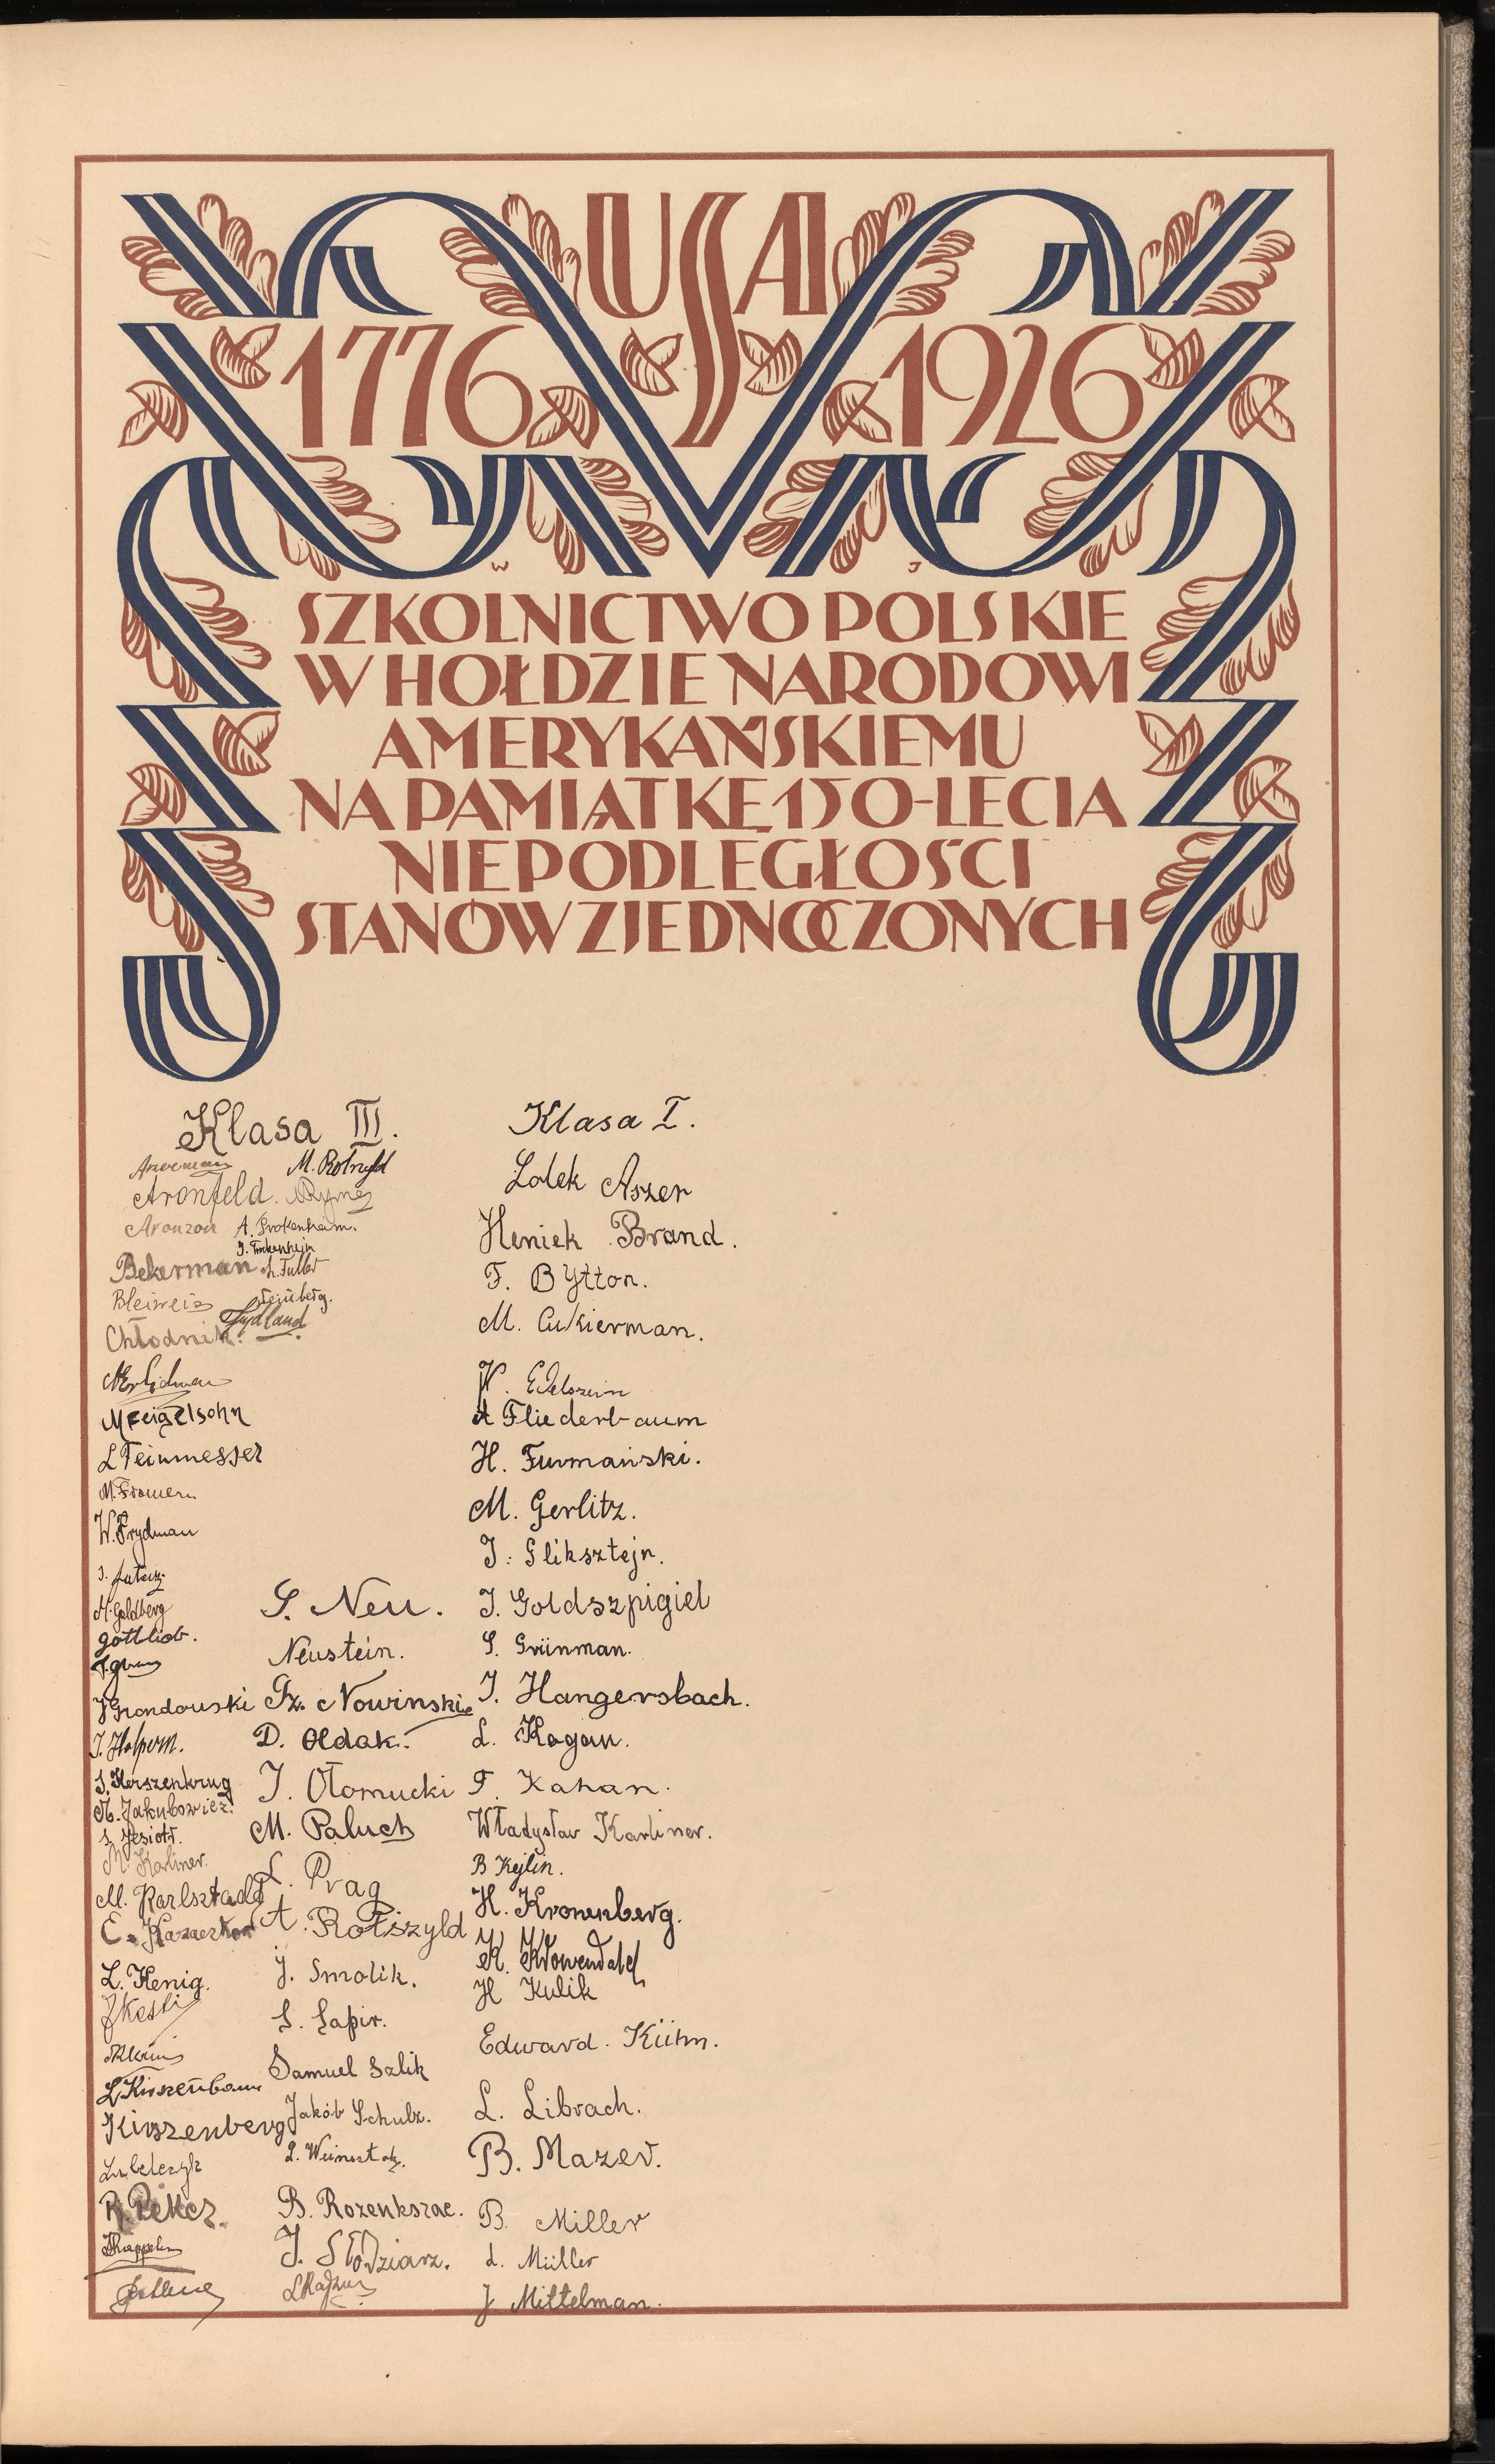 USA
1776 1926
W J
SZKOLNICTWO POLSKIE
W HOŁDZIE NARODOWI
AMERYKAŃSKIEMU
NA PAMIĄTKĘ 150-LECIA
NIEPODLEGŁOŚCI
STANÓW ZJEDNOCZONYCH
Klasa III.
M. Rotszyld
Aronfeld. Rymer
Aronzon A. Frokenheim.
Bekerman
Bleiweis
Fydland
Chłodnik.
M Feigelsohn
L Feinmesser
M. Fromern
W. Frydman
M. Goldberg
gottlieb.
Grondowski
I. Halpern.
S. Herszenkrug
M. Jakubowicz.
S. Jesiotr.
M. Karliner.
M. Karlsztadt
E. Kazaczkow
L. Kenig.
L Kirszenbaum
Kirszenberg
Lubelczyk
R. Peker.
S. Neu.
Neustein.
Sz. Nowinski
D. Oldak.
J. Ołomucki
M. Paluch
L. Prag
A. Rotszyld
J. Smolik.
S. Sapir.
Samuel Szlik
Jakób Schulz.
B. Rozenkszac.
J. Słodziarz.
Klasa I.
Lolek Aszer
Heniek Brand.
F. Bytton.
M. Cukierman.
W. Edelsztein
A Fliederbaum
H. Furmański.
M. Gerlitz.
J. Gliksztejn.
J. Goldszpigiel
S. Grünman.
J. Hangersbach.
L. Kagan.
F. Kahan.
Władysław Karliner.
B Kejlin.
H. Kronenberg.
H Kulik
Edward. Kühn.
L. Librach.
B. Mazer.
B. Miller
L. Müller
J Mittelman.